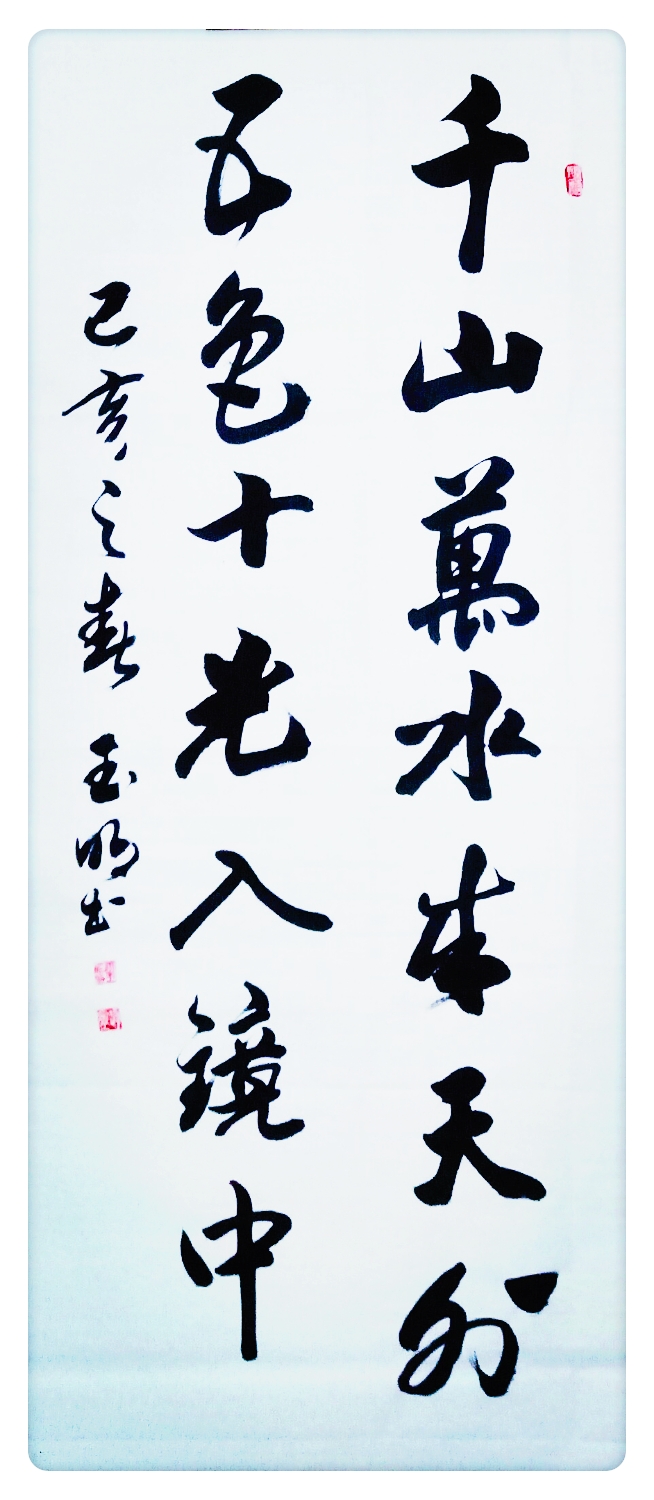 千山萬水来天外
五色十光入鏡中
己亥之春 玉明书